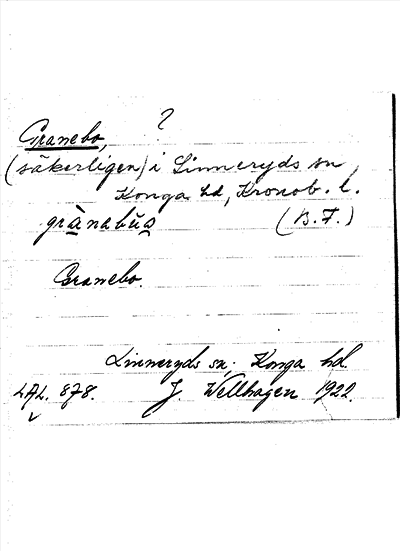 ?
Granebo,
(säkerligen) i Linneryds sn,
Konga hd, Kronob. l.
grànabǜa (B.F.)
Granebo.
Linneryds sn; Konga hd.
LAL. 878. J. Wellhagen 1922.